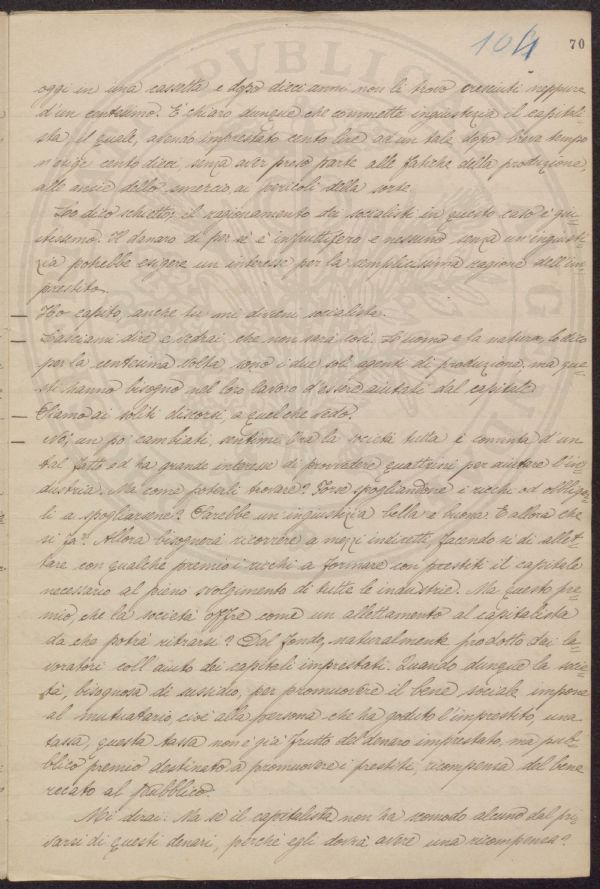 104 70
oggi in una cassetta e dopo dieci anni non le trovo cresciuti neppure
d'un centesimo. È chiaro dunque che commette ingiustizia il capitali-
sta il quale, avendo imprestato cento lire ad un tale dopo breve tempo
n'esige cento dieci, senza aver preso parte alle fatiche della produzione,
alle ansie dello smercio, ai pericoli della sorte.
Lo dico schietto: il ragionamento dei socialisti in questo caso è giu-
stissimo. Il danaro di per sè è infruttifero e nessuno senza un'ingiusti-
zia potrebbe esigere un interesse per la semplicissima ragione dell'im-
prestito.
— Ho capito, anche tu mi diventi socialista.
— Lasciami dire e vedrai che non sarà così. L'uomo e la natura, lo dico
per la centesima volta sono i due soli agenti di produzione, ma que-
sti hanno bisogno nel loro lavoro d'essere aiutati dal capitale.
— Siamo ai soliti discorsi, a quel che vedo.
— No, un po' cambiati, sentimi. Ora la società tutta è convinta d'un
tal fatto ed ha grande interesse di provvedere quattrini per aiutare l'in-
dustria. Ma come poterli trovare? Forse spogliandone i ricchi od obbligan-
li a spogliarsene? Sarebbe un'ingiustizia bella e buona. E allora che
si fa? Allora bisognerà ricorrere a mezzi indiretti, facendo sì di allet-
tare con qualche premio i ricchi a formare con prestiti il capitale
necessario al pieno svolgimento di tutte le industrie. Ma questo pre-
mio, che la società offre come un allettamento al capitalista
da che potrà ritrarsi? Dal fondo, naturalmente prodotto dai la-
voratori coll'aiuto dei capitali imprestati. Quando dunque la socie-
tà, bisognosa di sussidio, per promuovere il bene sociale impone
al mutuatario, cioè alla persona che ha goduto l'imprestito, una
tassa, questa tassa non è già frutto del denaro imprestato, ma pub-
blico premio destinato a promuovere i prestiti, ricompensa del bene
recato al pubblico.
Mi dirai: Ma se il capitalista non ha scomodo alcuno dal pri-
varsi di questi denari, perchè egli dovrà avere una ricompensa?